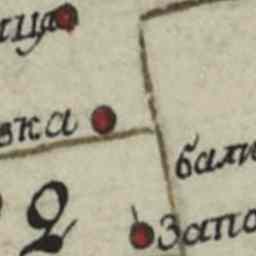 ица
вка
бали
2
Запо